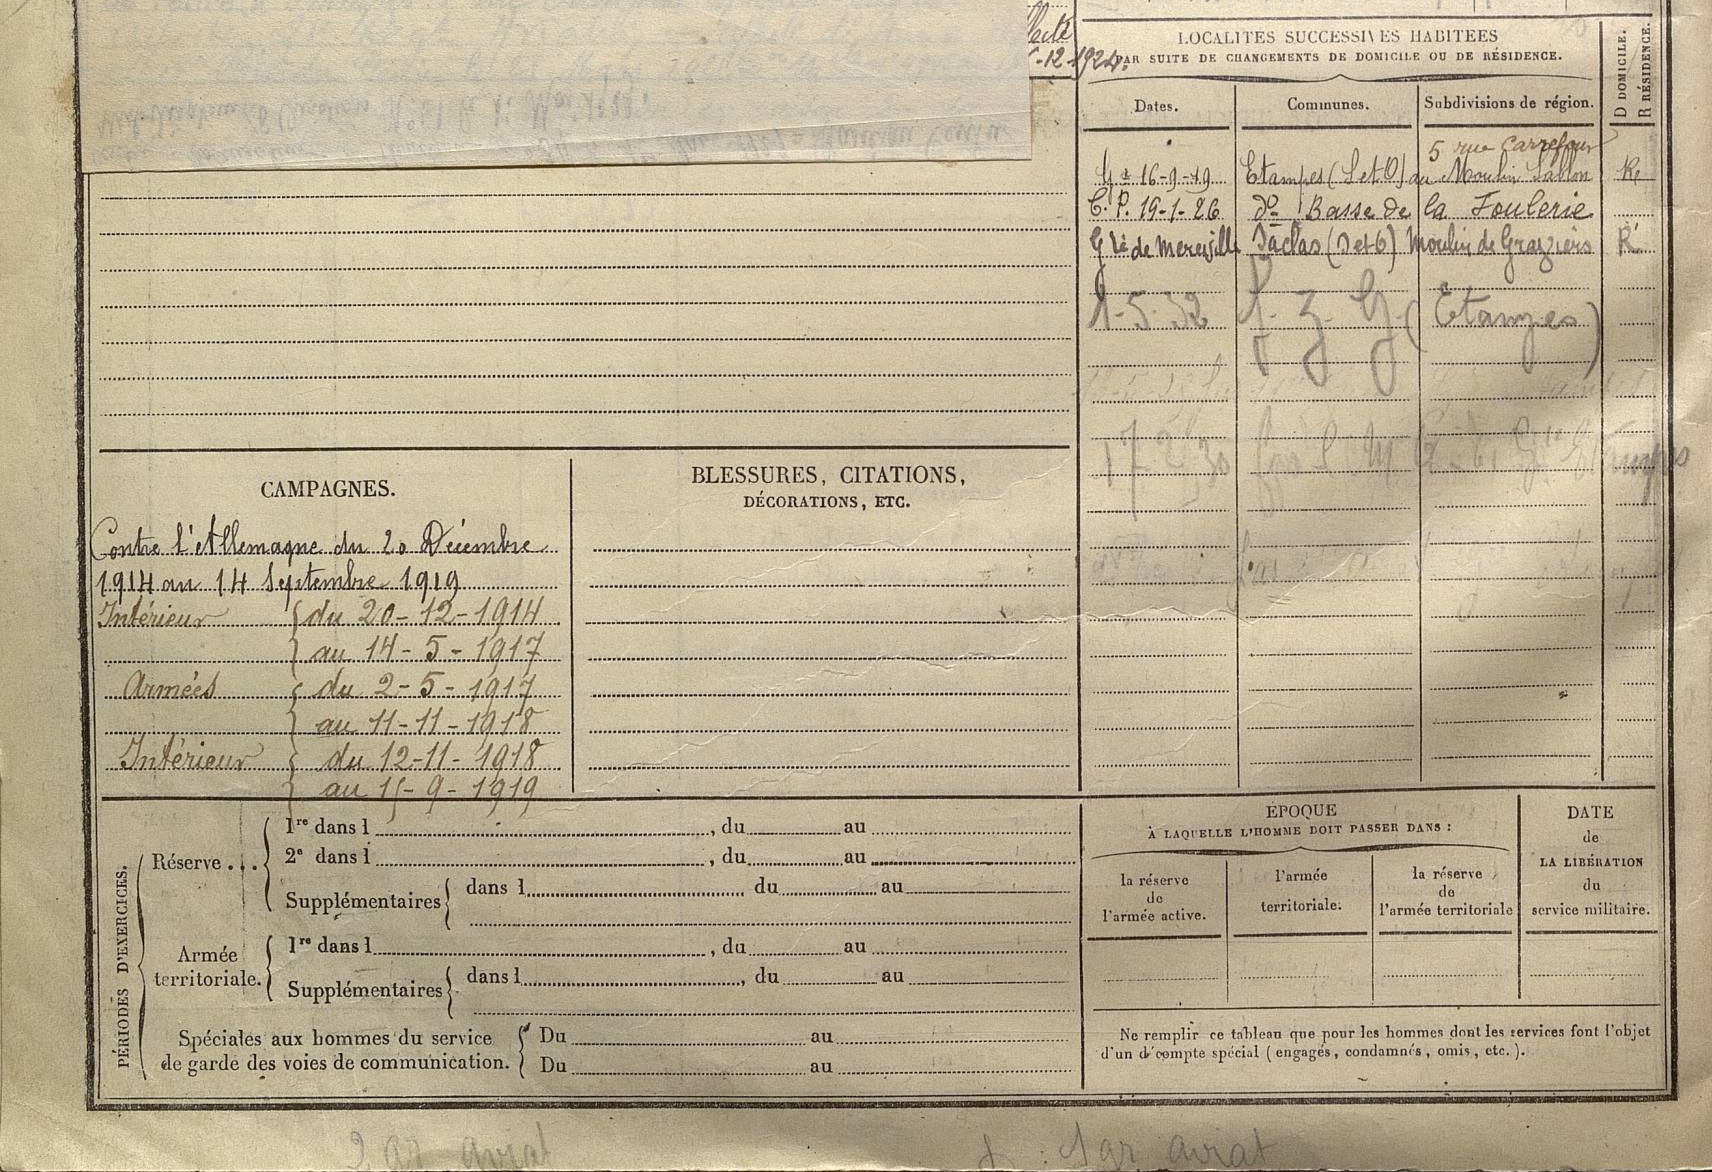 -12-1924.
LOCALITÉS SUCCESSIVES HABITÉES
PAR SUITE DE CHANGEMENTS DE DOMICILE OU DE RÉSIDENCE.
D DOMICILE.
R RÉSIDENCE.
Dates.
Communes.
Subdivisions de région.
5 rue Carrefour
16-9-19 Etampes (S et O) au Moulin Sablon R
C. P. 19-1-26 do Basse de la Foulerie
Gie de Mereville Saclas (S et O) Moulin de Graziers R
1-5-32 (Etampes)
CAMPAGNES.
Contre l'Allemagne du 20 Décembre
1914 au 14 Septembre 1919
Intérieur { du 20-12-1914
au 14-5-1917
Armées { du 2-5-1917
au 11-11-1918
Intérieur { du 12-11-1918
au 15-9-1919
BLESSURES, CITATIONS,
DÉCORATIONS, ETC.
PÉRIODES D'EXERCICES.
Réserve...
1re dans l , du au
2e dans l , du au
Supplémentaires { dans l du au
Armée
territoriale.
1re dans l , du au
Supplémentaires { dans l , du au
Spéciales aux hommes du service
de garde des voies de communication.
Du au
Du au
ÉPOQUE
À LAQUELLE L'HOMME DOIT PASSER DANS :
la réserve
de
l'armée active.
l'armée
territoriale.
la réserve
de
l'armée territoriale
DATE
de
LA LIBÉRATION
du
service militaire.
Ne remplir ce tableau que pour les hommes dont les services font l'objet
d'un décompte spécial (engagés, condamnés, omis, etc.).